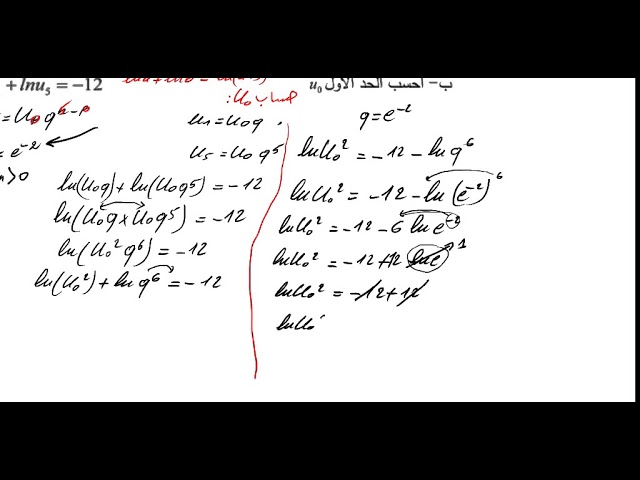 ب- احسب الحد الأول u₀
+ lnu₅ = -12
حساب u₀:
= u₀ qⁿ⁻⁰
= e⁻²
> 0
u₁ = u₀q
u₅ = u₀q⁵
ln(u₀q) + ln(u₀q⁵) = -12
ln(u₀q × u₀q⁵) = -12
ln(u₀²q⁶) = -12
ln(u₀²) + ln q⁶ = -12
q = e⁻²
ln u₀² = -12 - ln q⁶
ln u₀² = -12 - ln(e⁻²)⁶
ln u₀² = -12 - 6 ln e⁻²
ln u₀² = -12 + 12 ln e 1
ln u₀² = -12 + 12
ln u₀